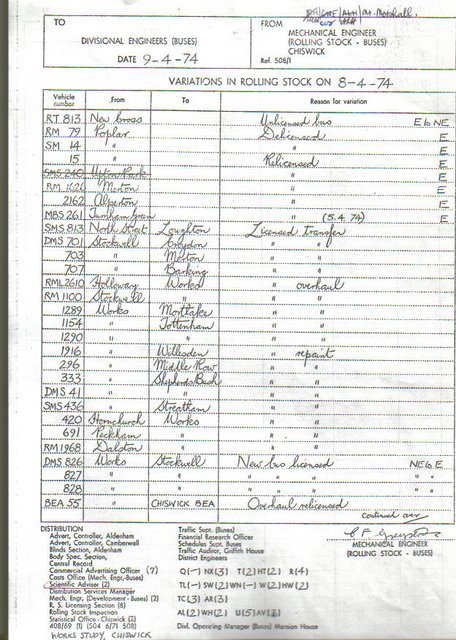 TO
DIVISIONAL ENGINEERS (BUSES)
DATE 9-4-74
FROM
MECHANICAL ENGINEER
(ROLLING STOCK - BUSES)
CHISWICK
Ref. 508/1
VARIATIONS IN ROLLING STOCK ON 8-4-74
Vehicle number From To Reason for variation
RT 813 New Cross Unlicensed bus E to NE
RM 79 Poplar Delicensed E
SM 14 " " E
15 " Relicensed E
SMS 240 Upton Park " E
RM 1626 Merton " E
2162 Alperton " E
MBS 261 Turnham Green " (5.4.74) E
SMS 813 North Street Loughton Licensed transfer
DMS 701 Stockwell Croydon " "
703 " Merton " "
707 " Barking " "
RML 2610 Holloway Works " overhaul
RM 1100 Stockwell " " "
1289 Works Mortlake " "
1154 " Tottenham " "
1290 " " " "
1916 " Willesden " repaint
296 " Middle Row " "
333 " Shepherds Bush " "
DMS 41 " " " "
SMS 436 " Streatham " "
420 Hornchurch Works " "
691 Peckham " " "
RM 1968 Dalston " " "
DMS 826 Works Stockwell New bus licensed NE to E
827 " " " " " " "
828 " " " " " " "
BEA 55 " CHISWICK BEA Overhaul relicensed
continued over
MECHANICAL ENGINEER
(ROLLING STOCK - BUSES)
DISTRIBUTION
Advert. Controller, Aldenham
Advert. Controller, Camberwell
Blinds Section, Aldenham
Body Spec. Section,
Central Record
Commercial Advertising Officer (7)
Costs Office (Mech. Engr.-Buses)
Scientific Adviser (2)
Distribution Services Manager
Mech. Engr. (Development - Buses) (2)
R. S. Licensing Section (8)
Rolling Stock Inspection
Statistical Office - Chiswick (2)
408/69 (1) (504 6/71 508)
WORKS STUDY, CHISWICK
Traffic Supt. (Buses)
Financial Research Officer
Schedules Supt. Buses
Traffic Auditor, Griffith House
District Engineers
Q(-) NX(3) T(2) HT(2) R(4)
TL(-) SW(2) WN(-) W(2) HW(2)
TC(3) AR(3)
AL(2) WH(2) U(5) AV(3)
Divl. Operating Manager (Buses) Mansion House